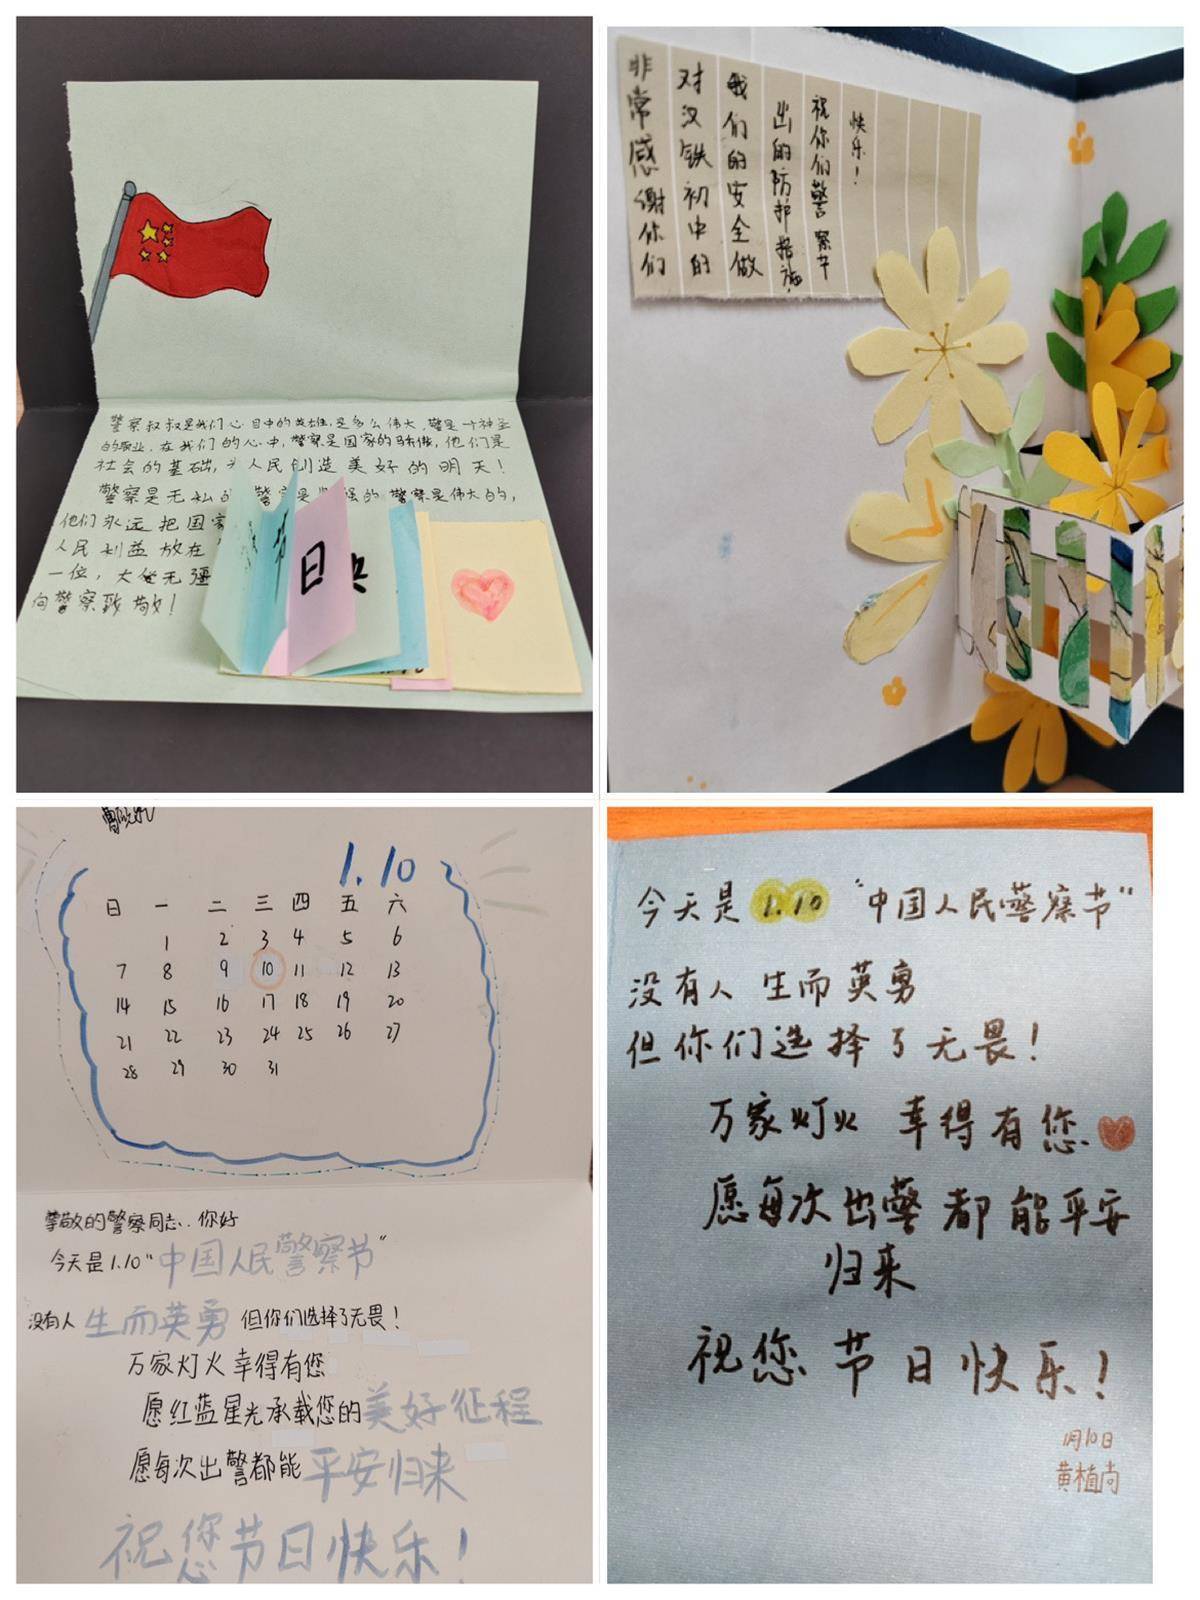 警察叔叔是我们心目中的英雄,是多么伟大,警是一个神圣
的职业,在我们的心中,警察是国家的骄傲,他们是
社会的基础,为人民创造美好的明天!
警察是无私的 警察是坚强的 警察是伟大的,
他们永远把国家
人民利益放在
一位,大爱无疆
向警察致敬!
节
日
非常感谢你们
对汉铁初中的
我们的安全做
出的防护措施,
祝你们警察节
快乐!
1.10
日 一 二 三 四 五 六
1 2 3 4 5 6
7 8 9 10 11 12 13
14 15 16 17 18 19 20
21 22 23 24 25 26 27
28 29 30 31
尊敬的警察同志..你好
今天是1.10"中国人民警察节"
没有人生而英勇 但你们选择了无畏!
万家灯火幸得有您
愿红蓝星光承载您的美好征程
愿每次出警都能平安归来
祝您节日快乐!
今天是1.10"中国人民警察节"
没有人生而英勇
但你们选择了无畏!
万家灯火 幸得有您
愿每次出警都能平安
归来
祝您节日快乐!
1月10日
黄植尚